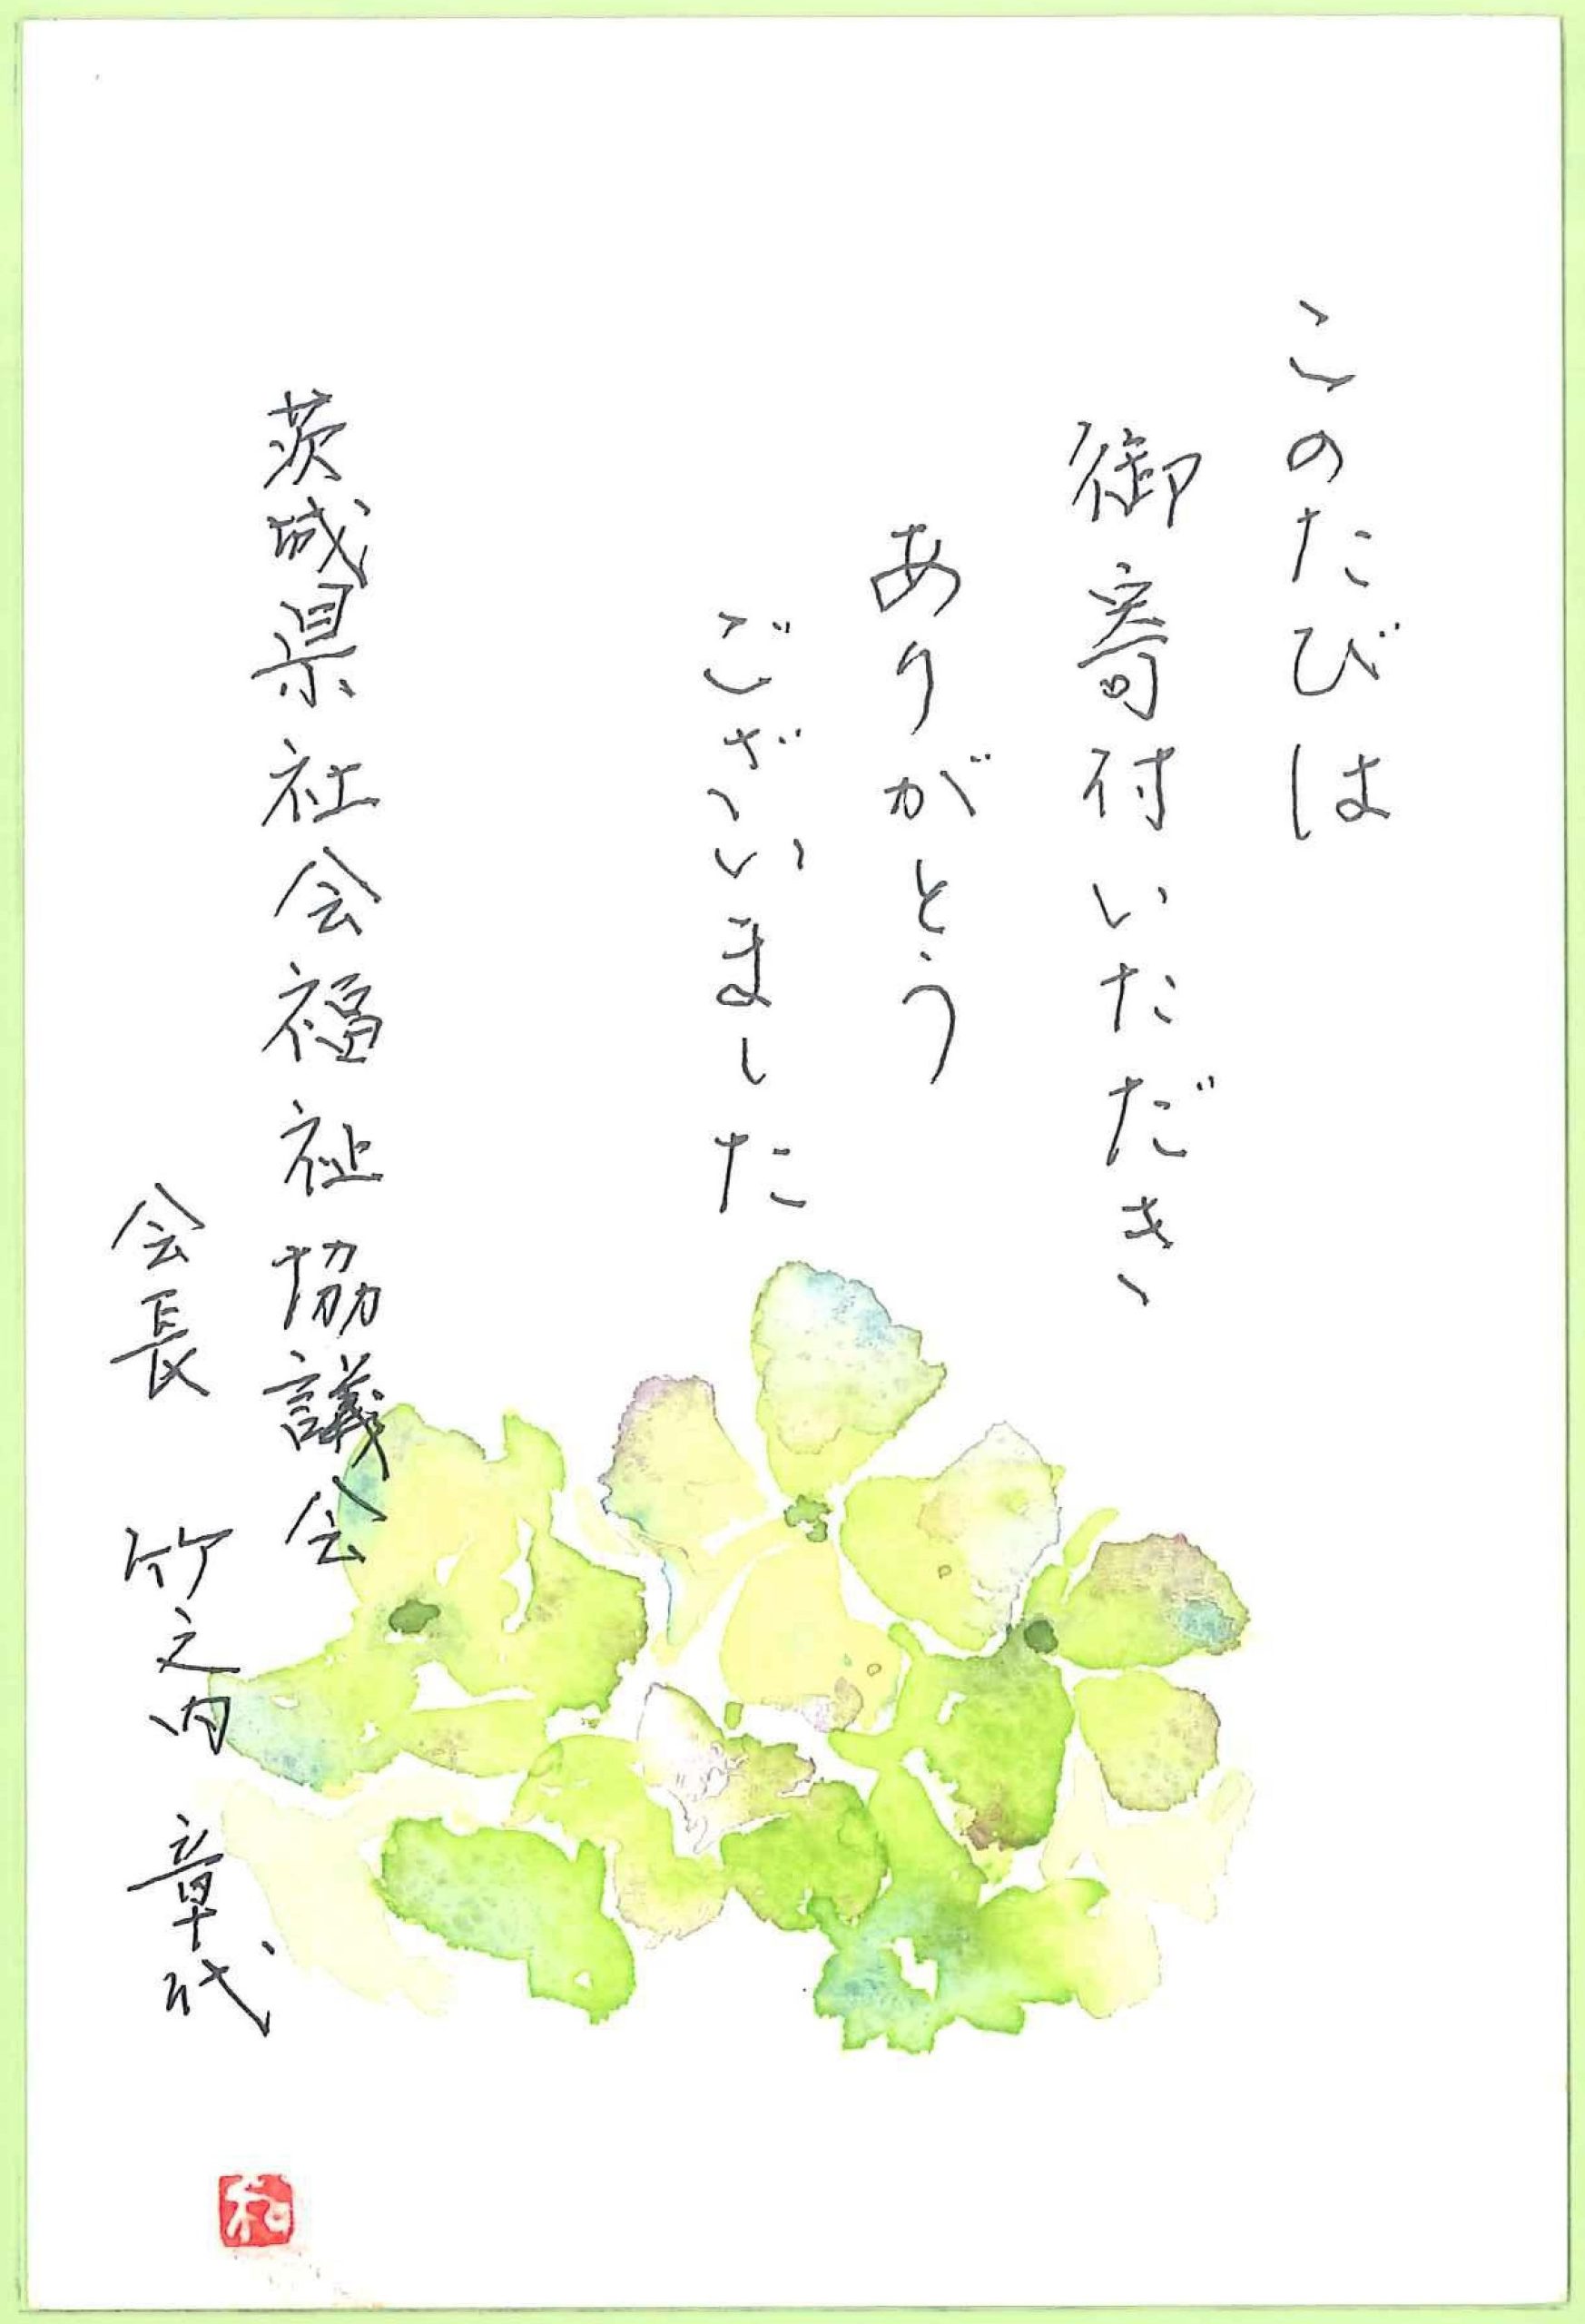 このたびは
御寄付いただき、
ありがとう
ございました
茨城県社会福祉協議会
会長 竹之内 章代
和